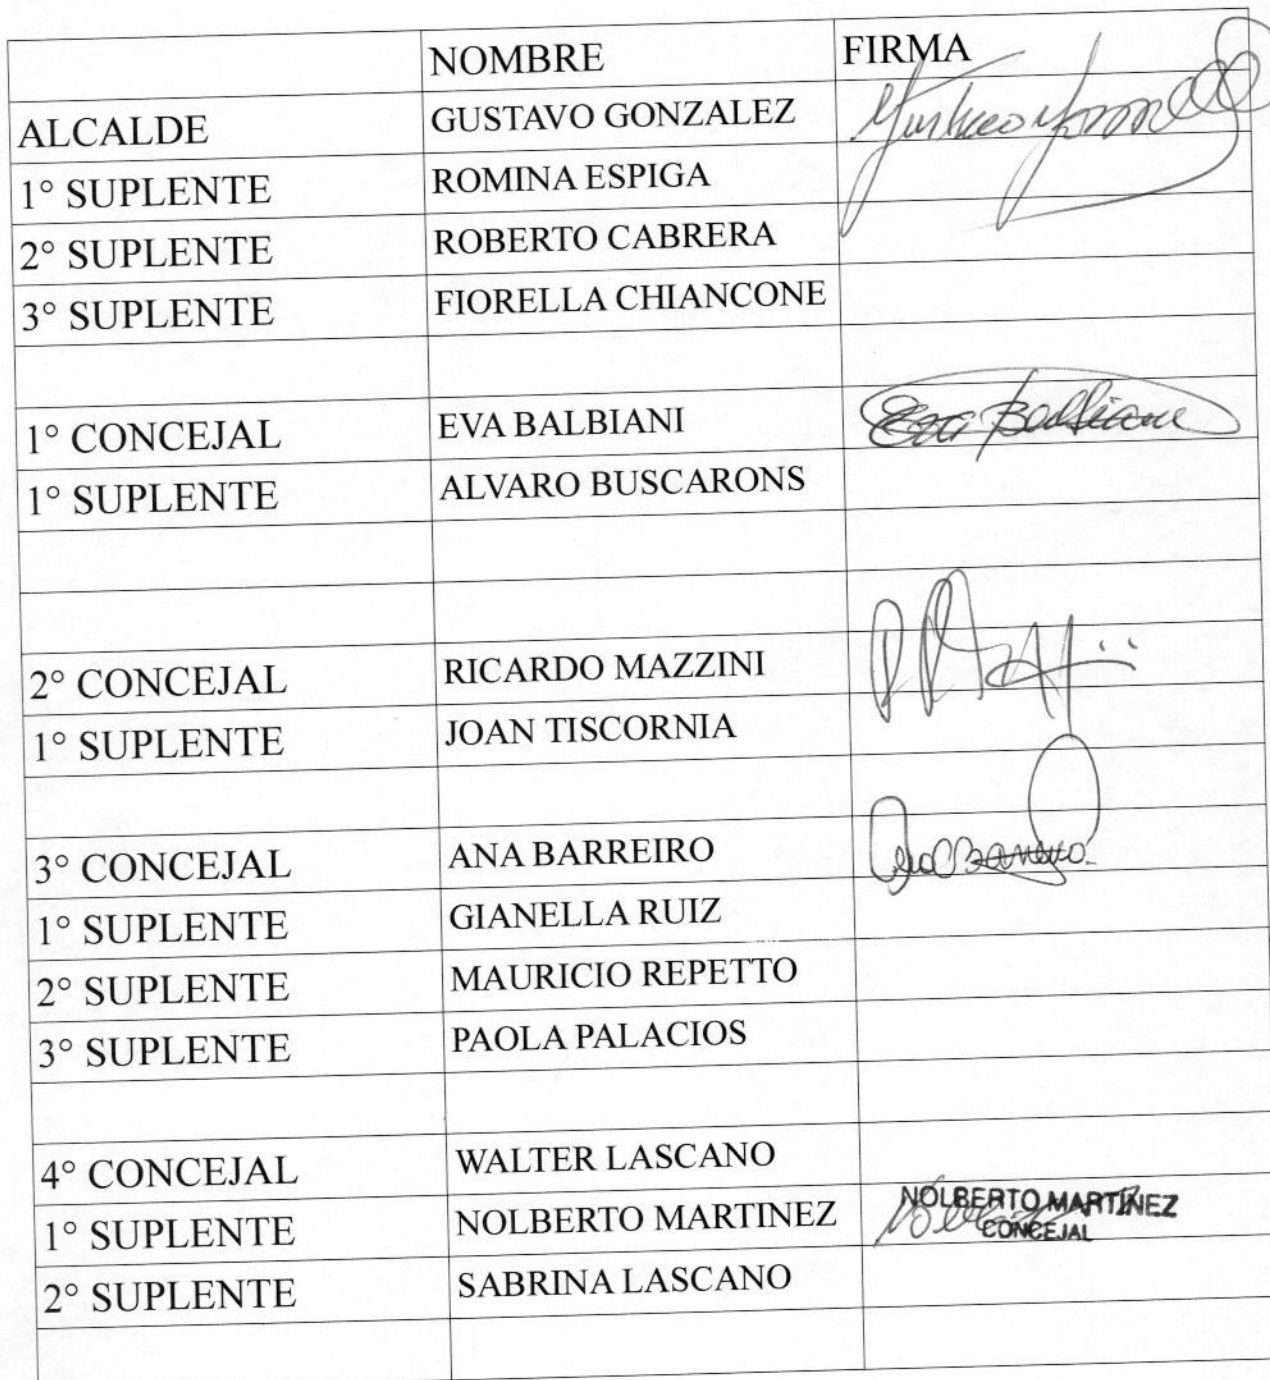 NOMBRE FIRMA
ALCALDE GUSTAVO GONZALEZ Gustavo Gonzalez
1° SUPLENTE ROMINA ESPIGA
2° SUPLENTE ROBERTO CABRERA
3° SUPLENTE FIORELLA CHIANCONE
1° CONCEJAL EVA BALBIANI Eva Balbiani
1° SUPLENTE ALVARO BUSCARONS
2° CONCEJAL RICARDO MAZZINI
1° SUPLENTE JOAN TISCORNIA
3° CONCEJAL ANA BARREIRO Ana Barreiro
1° SUPLENTE GIANELLA RUIZ
2° SUPLENTE MAURICIO REPETTO
3° SUPLENTE PAOLA PALACIOS
4° CONCEJAL WALTER LASCANO
1° SUPLENTE NOLBERTO MARTINEZ NOLBERTO MARTINEZ
CONCEJAL
2° SUPLENTE SABRINA LASCANO